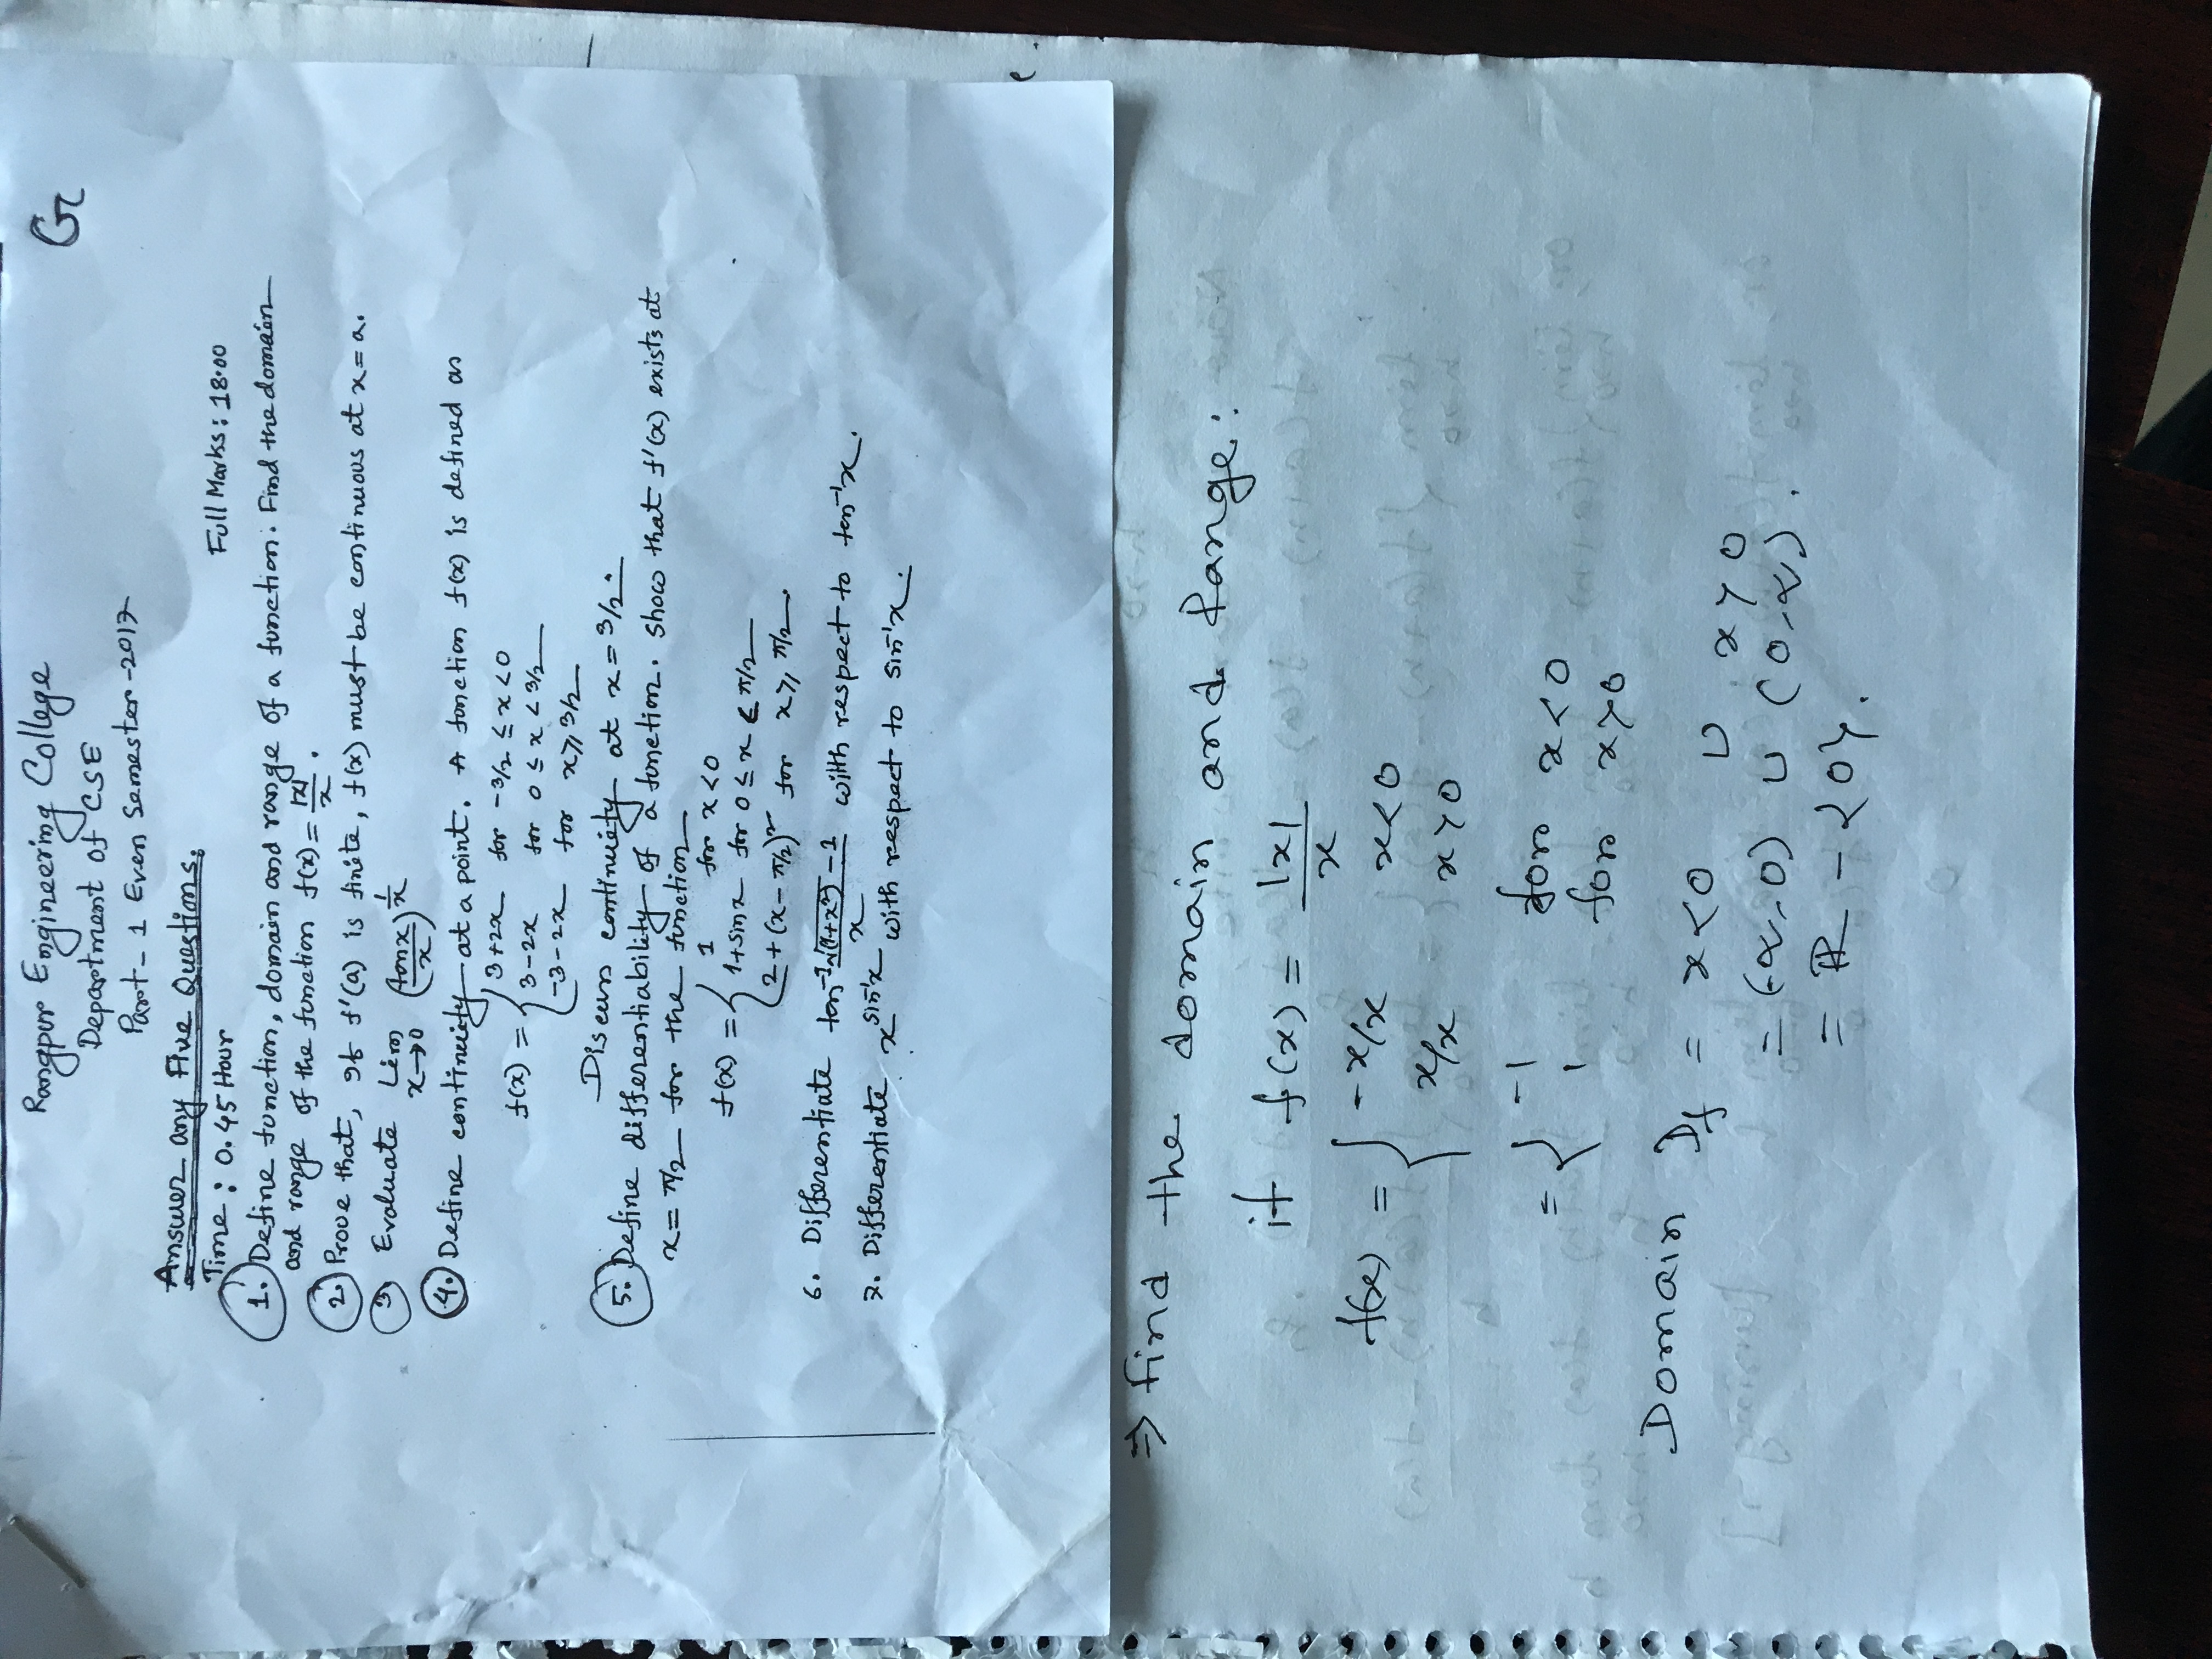 Rangpur Engineering College
G
Department of CSE
Part - 1 Even Semester -2017
Answer any Five Questions.
Time : 0.45 Hour Full Marks : 18.00
1. Define function, domain and range of a function. Find the domain
and range of the function f(x) = |x|/x .
2. Prove that, If f'(a) is finite, f(x) must be continuous at x = a.
3 Evaluate Lim x→0 (tanx/x)^(1/x)
4. Define continuity at a point. A function f(x) is defined as
f(x) = { 3+2x for -3/2 ≤ x < 0
3-2x for 0 ≤ x < 3/2
-3-2x for x ≥ 3/2
Discuss continuity at x = 3/2.
5. Define differentiability of a function. Show that f'(x) exists at
x = π/2 for the function
f(x) = { 1 for x < 0
1+sinx for 0 ≤ x ≤ π/2
2+(x-π/2)² for x ≥ π/2.
6. Differentiate tan⁻¹ (√(1+x²) - 1)/x with respect to tan⁻¹x.
7. Differentiate x^(sin⁻¹x) with respect to sin⁻¹x.
⇒ find the domain and Range:
if f(x) = |x|/x
f(x) = { -x/x x<0
x/x x>0
= { -1 for x<0
1 for x>0
Domain D_f = x<0 ∪ x>0
= (-∞, 0) ∪ (0, ∞).
= ℝ - {0}.